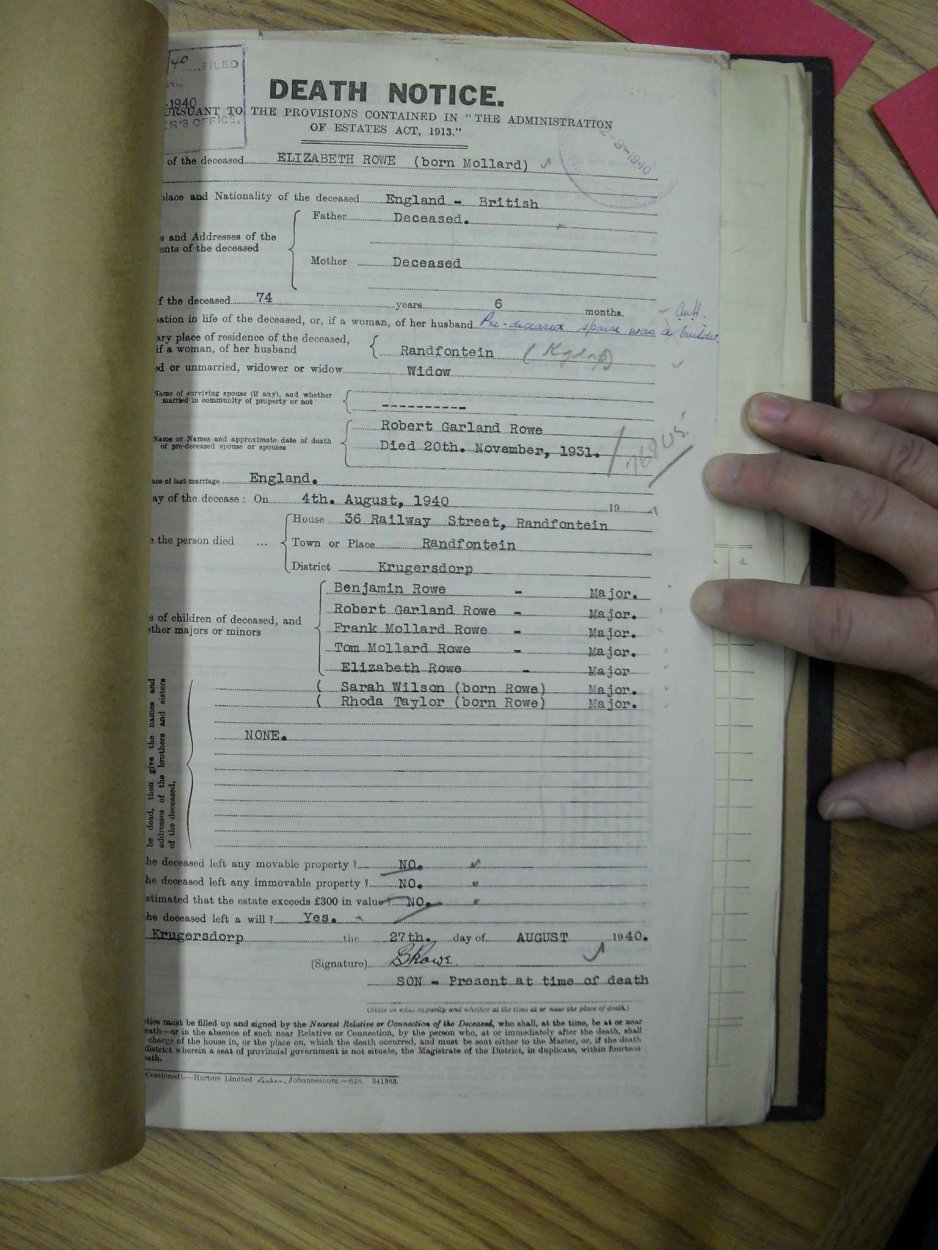 40 ...FILED
-1940
ER'S OFFICE.
-9-1940
DEATH NOTICE.
URSUANT TO THE PROVISIONS CONTAINED IN "THE ADMINISTRATION
OF ESTATES ACT, 1913."
of the deceased ELIZABETH ROWE (born Mollard)
place and Nationality of the deceased England - British
Father Deceased.
s and Addresses of the
ents of the deceased
Mother Deceased
f the deceased 74 years 6 months.
ation in life of the deceased, or, if a woman, of her husband Pre-deceased spouse was a builder
ary place of residence of the deceased,
if a woman, of her husband Randfontein (Kgdorp)
ed or unmarried, widower or widow Widow
Name of surviving spouse (if any), and whether
married in community of property or not ----------
Robert Garland Rowe
Name or Names and approximate date of death
of pre-deceased spouse or spouses Died 20th. November, 1931.
ace of last marriage England.
ay of the decease: On 4th. August, 1940 19
House 36 Railway Street, Randfontein
e the person died ... Town or Place Randfontein
District Krugersdorp
Benjamin Rowe - Major.
Robert Garland Rowe - Major.
s of children of deceased, and
ether majors or minors Frank Mollard Rowe - Major.
Tom Mollard Rowe - Major.
Elizabeth Rowe - Major
( Sarah Wilson (born Rowe) Major.
( Rhoda Taylor (born Rowe) Major.
be dead, then give the names and
addresses of the brothers and sisters
of the deceased.
NONE.
he deceased left any movable property? NO.
he deceased left any immovable property? NO.
stimated that the estate exceeds £300 in value NO.
he deceased left a will? Yes.
Krugersdorp the 27th. day of AUGUST 1940.
(Signature) Rowe
SON - Present at time of death
(State in what capacity and whether at the time at or near the place of death.)
tice must be filled up and signed by the Nearest Relative or Connection of the Deceased, who shall, at the time, be at or near
eath—or in the absence of such near Relative or Connection, by the person who, at or immediately after the death, shall
charge of the house in, or the place on, which the death occurred, and must be sent either to the Master, or, if the death
district wherein a seat of provincial government is not situate, the Magistrate of the District, in duplicate, within fourteen
eath.
Combined).—Hortors Limited Johannesburg.—628. 341363.